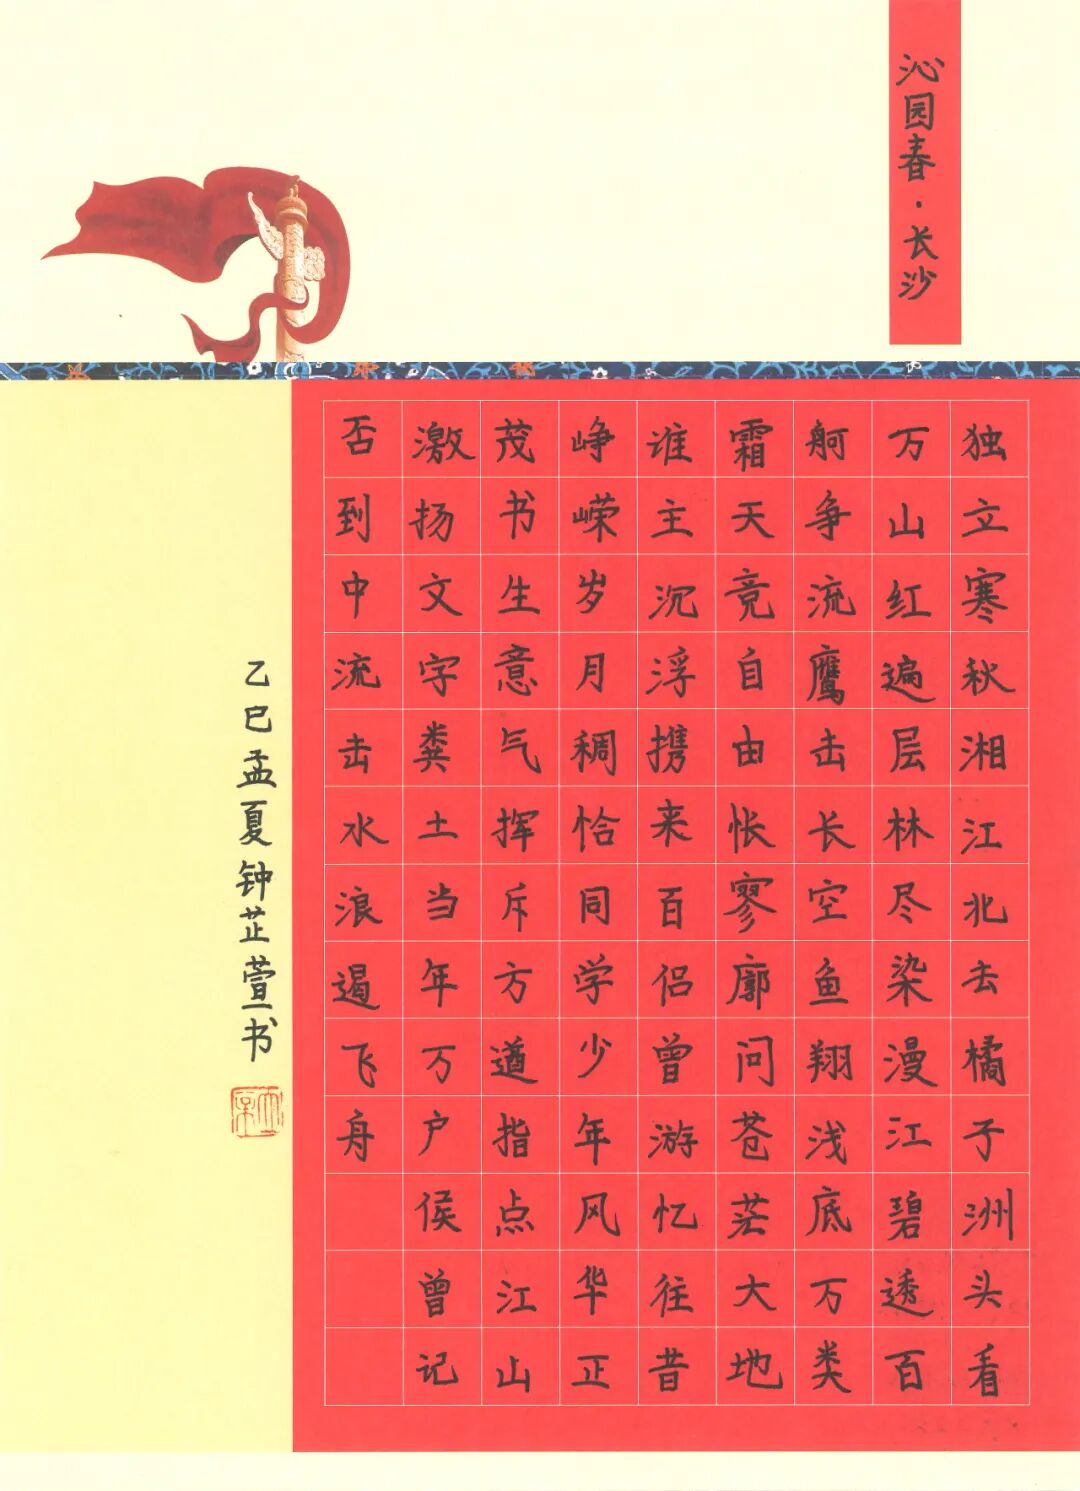 沁园春·长沙
独立寒秋湘江北去橘子洲头看
万山红遍层林尽染漫江碧透百
舸争流鹰击长空鱼翔浅底万类
霜天竞自由怅寥廓问苍茫大地
谁主沉浮携来百侣曾游忆往昔
峥嵘岁月稠恰同学少年风华正
茂书生意气挥斥方遒指点江山
激扬文字粪土当年万户侯曾记
否到中流击水浪遏飞舟
乙巳孟夏钟芷萱书